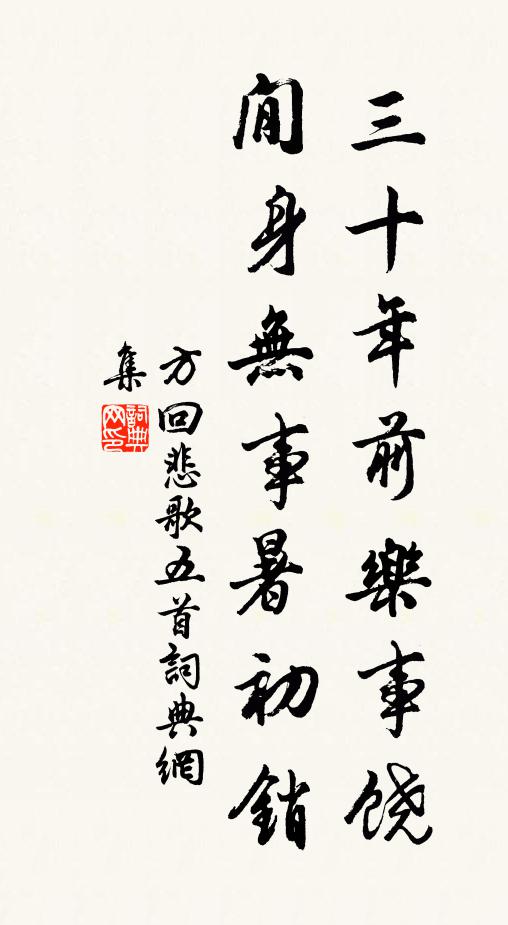 三十年前樂事饶
閒身無事暑初銷
方回悲歌五首詞典網
集
詞典網印